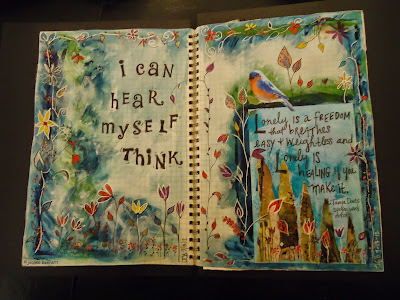 i CAN
HEAR
mySELF
THiNK
Lonely is a FREEDOM
that BREATHES
EASY + WEIGHTLESS and
Lonely is
HEALING if you
MAKE it.